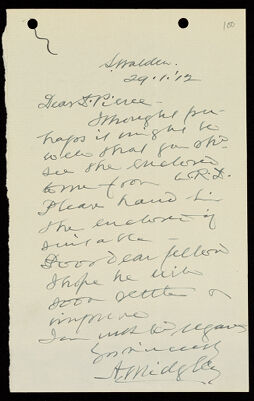 100
S. Walden.
29.1.'12
Dear Dr. Pierce -
I thought per-
haps it might be
well that you sh'd
see the enclosed
from L.R.D.
Please hand him
the enclosed if
suitable -
Poor dear fellow
I hope he will
soon settle &
improve
I am with
Yours sincerely
A. Midgley